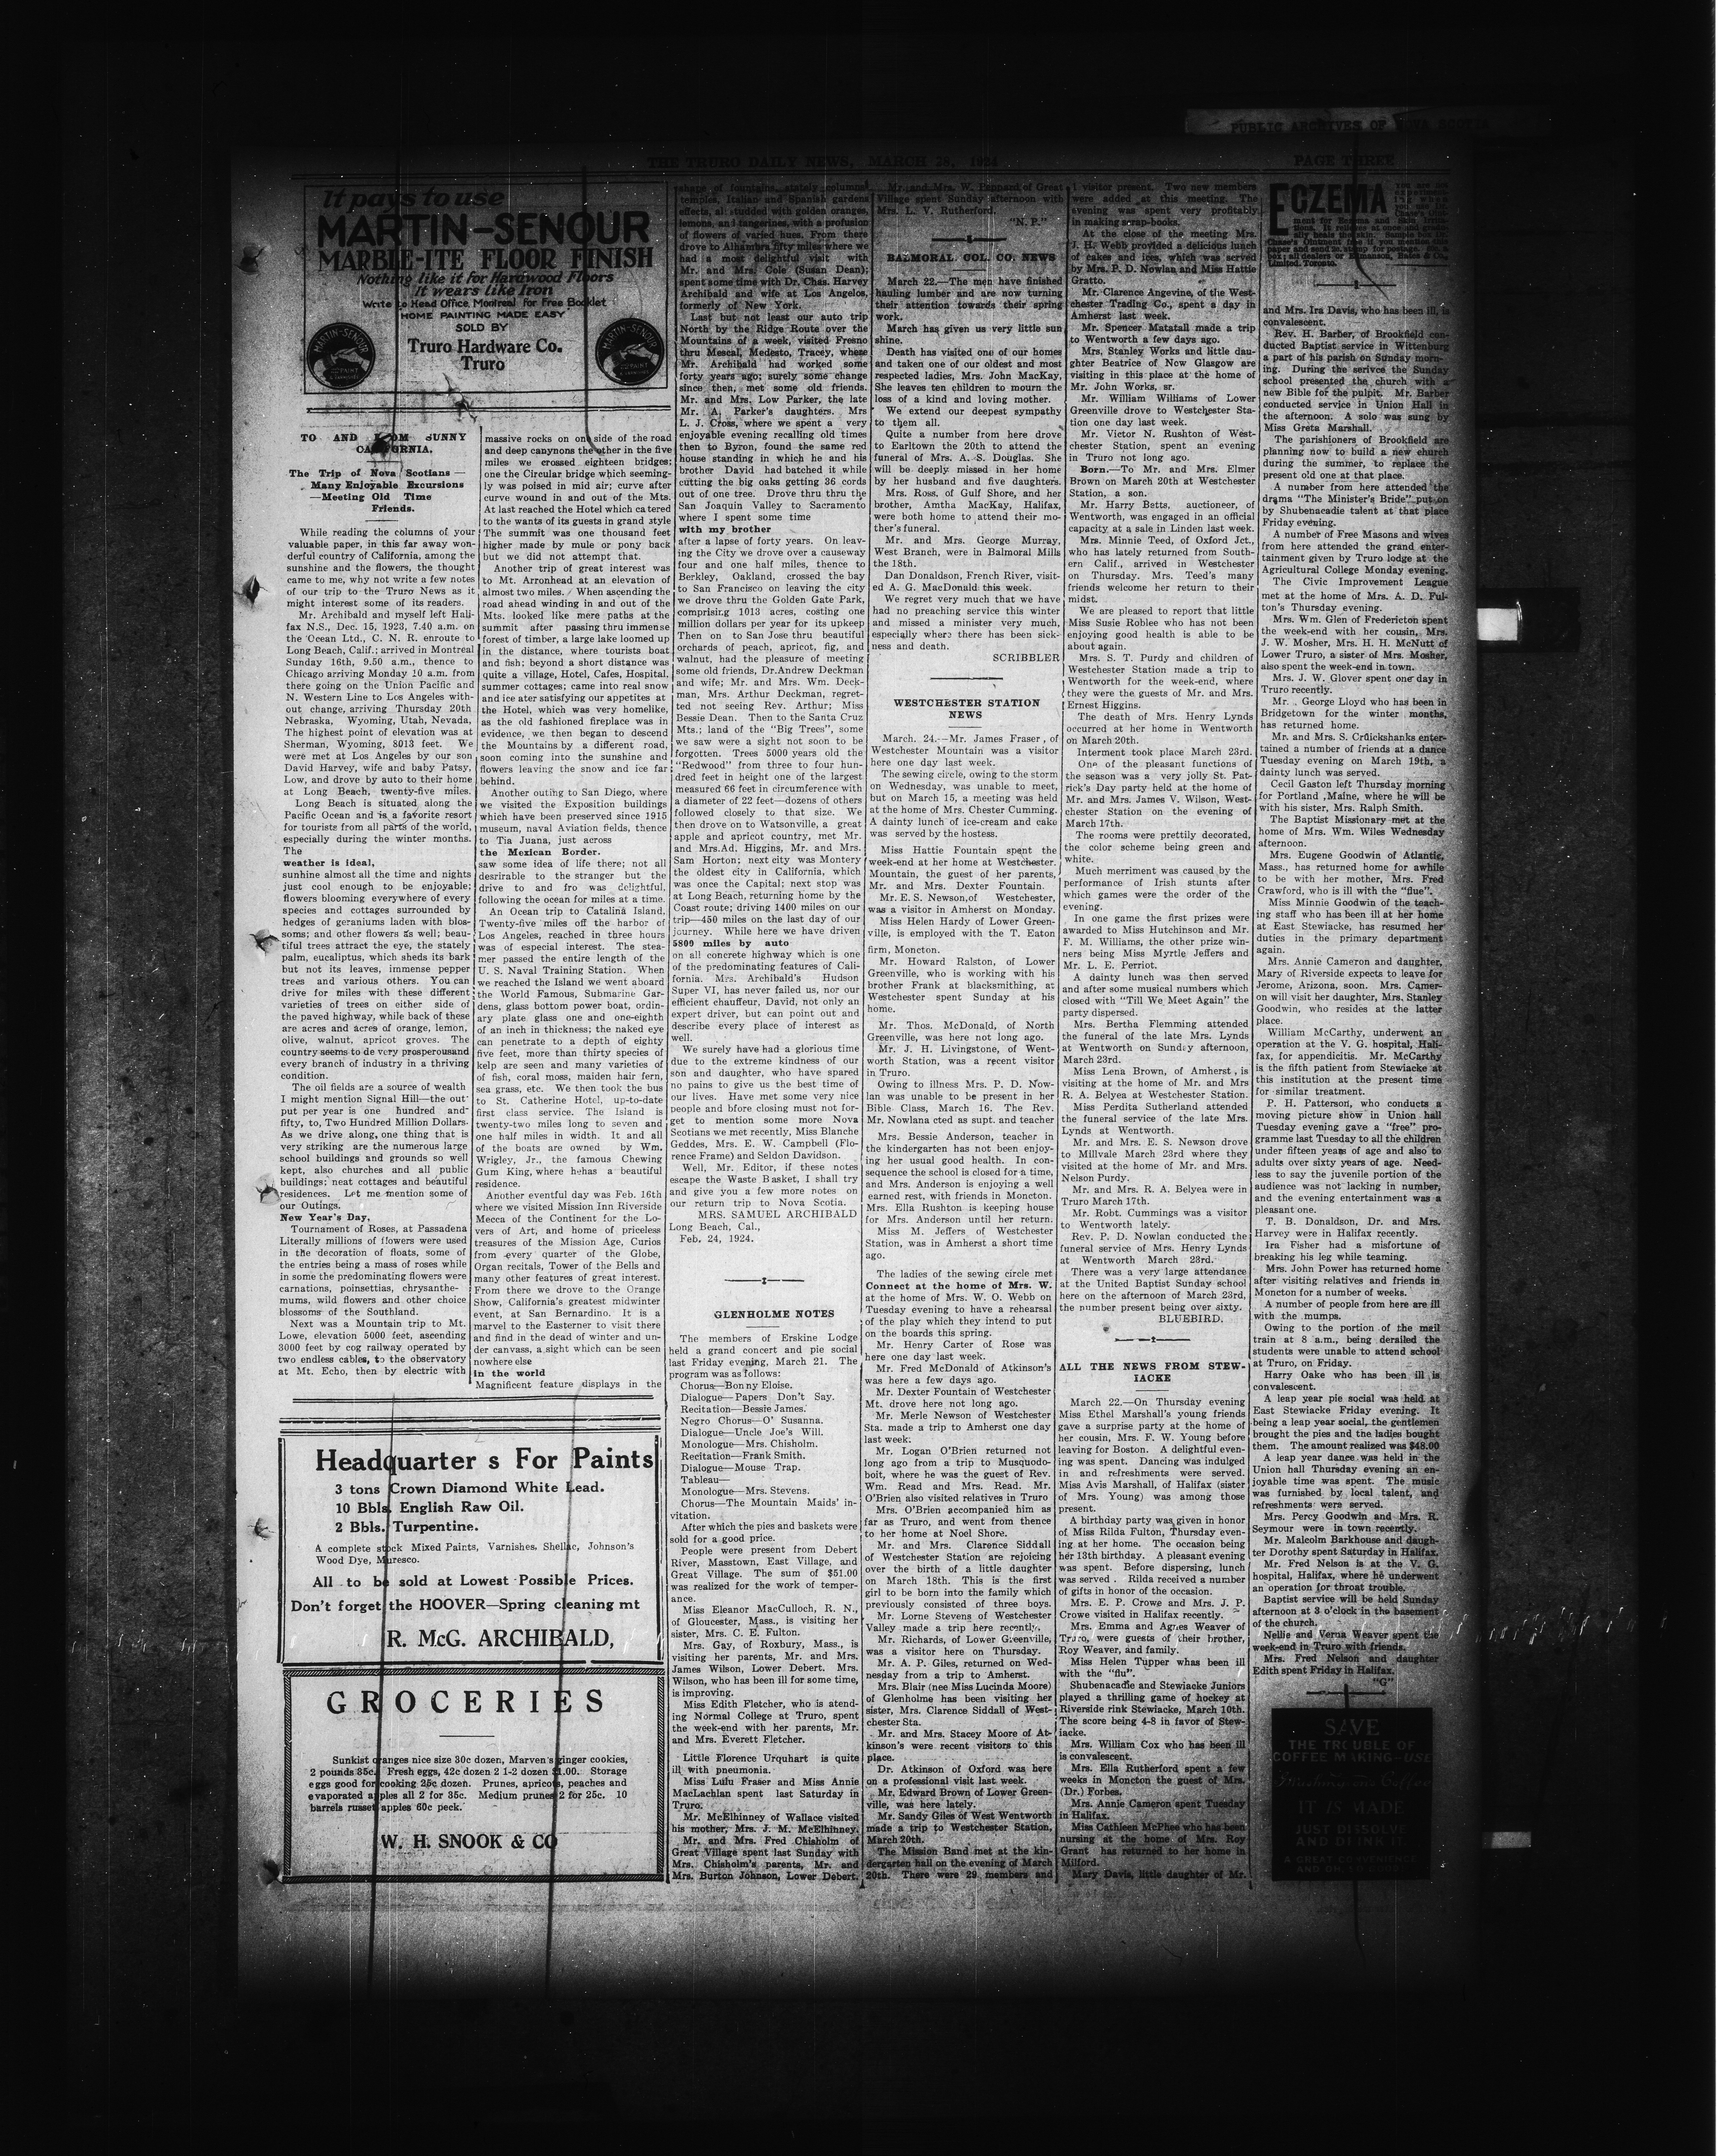 PUBLIC ARCHIVES OF NOVA SCOTIA
THE TRURO DAILY NEWS, MARCH 28, 1924
PAGE THREE
It pays to use
MARTIN-SENOUR
MARBLE-ITE FLOOR FINISH
Nothing like it for Hardwood Floors
It wears like Iron
Write to Head Office, Montreal for Free Booklet
HOME PAINTING MADE EASY
SOLD BY
Truro Hardware Co.
Truro
TO AND FROM SUNNY
CALIFORNIA.
The Trip of Nova Scotians—
Many Enjoyable Excursions
—Meeting Old Time
Friends.
While reading the columns of your
valuable paper, in this far away won-
derful country of California, among the
sunshine and the flowers, the thought
came to me, why not write a few notes
of our trip to the Truro News as it
might interest some of its readers.
Mr. Archibald and myself left Hali-
fax N.S., Dec. 15, 1923, 7.40 a.m. on
the Ocean Ltd., C. N. R. enroute to
Long Beach, Calif.; arrived in Montreal
Sunday 16th, 9.50 a.m., thence to
Chicago arriving Monday 10 a.m. from
there going on the Union Pacific and
N. Western Line to Los Angeles with-
out change, arriving Thursday 20th
Nebraska, Wyoming, Utah, Nevada,
The highest point of elevation was at
Sherman, Wyoming, 8013 feet. We
were met at Los Angeles by our son
David Harvey, wife and baby Patsy,
Low, and drove by auto to their home
at Long Beach, twenty-five miles.
Long Beach is situated along the
Pacific Ocean and is a favorite resort
for tourists from all parts of the world,
especially during the winter months.
The
weather is ideal,
sunhine almost all the time and nights
just cool enough to be enjoyable;
flowers blooming everywhere of every
species and cottages surrounded by
hedges of geraniums laden with blos-
soms; and other flowers as well; beau-
tiful trees attract the eye, the stately
palm, eucaliptus, which sheds its bark
but not its leaves, immense pepper
trees and various others. You can
drive for miles with these different
varieties of trees on either side of
the paved highway, while back of these
are acres and acres of orange, lemon,
olive, walnut, apricot groves. The
country seems to de very prosperousand
every branch of industry in a thriving
condition.
The oil fields are a source of wealth
I might mention Signal Hill—the out
put per year is one hundred and-
fifty, to, Two Hundred Million Dollars.
As we drive along, one thing that is
very striking are the numerous large
school buildings and grounds so well
kept, also churches and all public
buildings; neat cottages and beautiful
residences. Let me mention some of
our Outings,
New Year's Day,
Tournament of Roses, at Passadena
Literally millions of flowers were used
in the decoration of floats, some of
the entries being a mass of roses while
in some the predominating flowers were
carnations, poinsettias, chrysanthe-
mums, wild flowers and other choice
blossoms of the Southland.
Next was a Mountain trip to Mt.
Lowe, elevation 5000 feet, ascending
3000 feet by cog railway operated by
two endless cables, to the observatory
at Mt. Echo, then by electric with
massive rocks on one side of the road
and deep canynons the other in the five
miles we crossed eighteen bridges;
one the Circular bridge which seeming-
ly was poised in mid air; curve after
curve wound in and out of the Mts.
At last reached the Hotel which catered
to the wants of its guests in grand style
The summit was one thousand feet
higher made by mule or pony back
but we did not attempt that.
Another trip of great interest was
to Mt. Arronhead at an elevation of
almost two miles. When ascending the
road ahead winding in and out of the
Mts. looked like mere paths at the
summit after passing thru immense
forest of timber, a large lake loomed up
in the distance, where tourists boat
and fish; beyond a short distance was
quite a village, Hotel, Cafes, Hospital,
summer cottages; came into real snow
and ice ater satisfying our appetites at
the Hotel, which was very homelike,
as the old fashioned fireplace was in
evidence, we then began to descend
the Mountains by a different road,
soon coming into the sunshine and
flowers leaving the snow and ice far
behind.
Another outing to San Diego, where
we visited the Exposition buildings
which have been preserved since 1915
museum, naval Aviation fields, thence
to Tia Juana, just across
the Mexican Border.
saw some idea of life there; not all
desrirable to the stranger but the
drive to and fro was delightful,
following the ocean for miles at a time.
An Ocean trip to Catalina Island,
Twenty-five miles off the harbor of
Los Angeles, reached in three hours
was of especial interest. The stea-
mer passed the entire length of the
U. S. Naval Training Station. When
we reached the Island we went aboard
the World Famous, Submarine Gar-
dens, glass bottom power boat, ordin-
ary plate glass one and one-eighth
of an inch in thickness; the naked eye
can penetrate to a depth of eighty
five feet, more than thirty species of
kelp are seen and many varieties of
of fish, coral moss, maiden hair fern,
sea grass, etc. We then took the bus
to St. Catherine Hotel, up-to-date
first class service. The Island is
twenty-two miles long to seven and
one half miles in width. It and all
of the boats are owned by Wm.
Wrigley, Jr., the famous Chewing
Gum King, where hehas a beautiful
residence.
Another eventful day was Feb. 16th
where we visited Mission Inn Riverside
Mecca of the Continent for the Lo-
vers of Art, and home of priceless
treasures of the Mission Age, Curios
from every quarter of the Globe,
Organ recitals, Tower of the Bells and
many other features of great interest.
From there we drove to the Orange
Show, California's greatest midwinter
event, at San Bernardino. It is a
marvel to the Easterner to visit there
and find in the dead of winter and un-
der canvass, a sight which can be seen
nowhere else
in the world
Magnificent feature displays in the
Headquarter s For Paints
3 tons Crown Diamond White Lead.
10 Bbls. English Raw Oil.
2 Bbls. Turpentine.
A complete stock Mixed Paints, Varnishes, Shellac, Johnson's
Wood Dye, Muresco.
All to be sold at Lowest Possible Prices.
Don't forget the HOOVER—Spring cleaning mt
R. McG. ARCHIBALD,
GROCERIES
Sunkist oranges nice size 30c dozen, Marven's ginger cookies,
2 pounds 35c. Fresh eggs, 42c dozen 2 1-2 dozen $1.00. Storage
eggs good for cooking 25c dozen. Prunes, apricots, peaches and
evaporated apples all 2 for 35c. Medium prunes 2 for 25c. 10
barrels russet apples 60c peck.
W. H. SNOOK & CO
shape of fountains, stately columns,
temples, Italian and Spanish gardens
effects, al: studded with golden oranges,
lemons, and tangerines, with a profusion
of flowers of varied hues. From there
drove to Alhambra fifty miles where we
had a most delightful visit with
Mr. and Mrs. Cole (Susan Dean);
spent some time with Dr. Chas. Harvey
Archibald and wife at Los Angelos,
formerly of New York.
Last but not least our auto trip
North by the Ridge Route over the
Mountains of a week, visited Fresno
thru Mescal, Medesto, Tracey, where
Mr. Archibald had worked some
forty years ago; surely some change
since then, met some old friends.
Mr. and Mrs. Low Parker, the late
Mr. A. Parker's daughters. Mrs
L. J. Cross, where we spent a very
enjoyable evening recalling old times
then to Byron, found the same red
house standing in which he and his
brother David had batched it while
cutting the big oaks getting 36 cords
out of one tree. Drove thru thru the
San Joaquin Valley to Sacramento
where I spent some time
with my brother
after a lapse of forty years. On leav-
ing the City we drove over a causeway
four and one half miles, thence to
Berkley, Oakland, crossed the bay
to San Francisco on leaving the city
we drove thru the Golden Gate Park,
comprising 1013 acres, costing one
million dollars per year for its upkeep
Then on to San Jose thru beautiful
orchards of peach, apricot, fig, and
walnut, had the pleasure of meeting
some old friends, Dr.Andrew Deckman
and wife; Mr. and Mrs. Wm. Deck-
man, Mrs. Arthur Deckman, regret-
ted not seeing Rev. Arthur; Miss
Bessie Dean. Then to the Santa Cruz
Mts.; land of the "Big Trees", some
we saw were a sight not soon to be
forgotten. Trees 5000 years old the
"Redwood" from three to four hun-
dred feet in height one of the largest
measured 66 feet in circumference with
a diameter of 22 feet—dozens of others
followed closely to that size. We
then drove on to Watsonville, a great
apple and apricot country, met Mr.
and Mrs.Ad. Higgins, Mr. and Mrs.
Sam Horton; next city was Montery
the oldest city in California, which
was once the Capital; next stop was
at Long Beach, returning home by the
Coast route; driving 1400 miles on our
trip—450 miles on the last day of our
journey. While here we have driven
5800 miles by auto
on all concrete highway which is one
of the predominating features of Cali-
fornia. Mrs. Archibald's Hudson
Super VI, has never failed us, nor our
efficient chauffeur, David, not only an
expert driver, but can point out and
describe every place of interest as
well.
We surely have had a glorious time
due to the extreme kindness of our
son and daughter, who have spared
no pains to give us the best time of
our lives. Have met some very nice
people and bfore closing must not for-
get to mention some more Nova
Scotians we met recently, Miss Blanche
Geddes, Mrs. E. W. Campbell (Flo-
rence Frame) and Seldon Davidson.
Well, Mr. Editor, if these notes
escape the Waste Basket, I shall try
and give you a few more notes on
our return trip to Nova Scotia.
MRS. SAMUEL ARCHIBALD
Long Beach, Cal.,
Feb. 24, 1924.
GLENHOLME NOTES
The members of Erskine Lodge
held a grand concert and pie social
last Friday evening, March 21. The
program was as follows:
Chorus—Bonny Eloise.
Dialogue—Papers Don't Say.
Recitation—Bessie James.
Negro Chorus—O' Susanna.
Dialogue—Uncle Joe's Will.
Monologue—Mrs. Chisholm.
Recitation—Frank Smith.
Dialogue—Mouse Trap.
Tableau—
Monologue—Mrs. Stevens.
Chorus—The Mountain Maids' in-
vitation.
After which the pies and baskets were
sold for a good price.
People were present from Debert
River, Masstown, East Village, and
Great Village. The sum of $51.00
was realized for the work of temper-
ance.
Miss Eleanor MacCulloch, R. N.,
of Gloucester, Mass., is visiting her
sister, Mrs. C. E. Fulton.
Mrs. Gay, of Roxbury, Mass., is
visiting her parents, Mr. and Mrs.
James Wilson, Lower Debert. Mrs.
Wilson, who has been ill for some time,
is improving.
Miss Edith Fletcher, who is atend-
ing Normal College at Truro, spent
the week-end with her parents, Mr.
and Mrs. Everett Fletcher.
Little Florence Urquhart is quite
ill with pneumonia.
Miss Lulu Fraser and Miss Annie
MacLachlan spent last Saturday in
Truro.
Mr. McElhinney of Wallace visited
his mother, Mrs. J. M. McElhinney.
Mr. and Mrs. Fred Chisholm of
Great Village spent last Sunday with
Mrs. Chisholm's parents, Mr. and
Mrs. Burton Johnson, Lower Debert.
Mr. and Mrs. W. Pennant of Great
Village spent Sunday afternoon with
Mrs. L. V. Rutherford.
"N. P."
BALMORAL COL. CO. NEWS
March 22.—The men have finished
hauling lumber and are now turning
their attention towards their spring
work.
March has given us very little sun
shine.
Death has visited one of our homes
and taken one of our oldest and most
respected ladies, Mrs. John MacKay,
She leaves ten children to mourn the
loss of a kind and loving mother.
We extend our deepest sympathy
to them all.
Quite a number from here drove
to Earltown the 20th to attend the
funeral of Mrs. A. S. Douglas. She
will be deeply missed in her home
by her husband and five daughters.
Mrs. Ross, of Gulf Shore, and her
brother, Amtha MacKay, Halifax,
were both home to attend their mo-
ther's funeral.
Mr. and Mrs. George Murray,
West Branch, were in Balmoral Mills
the 18th.
Dan Donaldson, French River, visit-
ed A. G. MacDonald this week.
We regret very much that we have
had no preaching service this winter
and missed a minister very much,
especially where there has been sick-
ness and death.
SCRIBBLER
WESTCHESTER STATION
NEWS
March. 24.—Mr. James Fraser, of
Westchester Mountain was a visitor
here one day last week.
The sewing circle, owing to the storm
on Wednesday, was unable to meet,
but on March 15, a meeting was held
at the home of Mrs. Chester Cumming.
A dainty lunch of ice-cream and cake
was served by the hostess.
Miss Hattie Fountain spent the
week-end at her home at Westchester.
Mountain, the guest of her parents,
Mr. and Mrs. Dexter Fountain.
Mr. E. S. Newson,of Westchester,
was a visitor in Amherst on Monday.
Miss Helen Hardy of Lower Green-
ville, is employed with the T. Eaton
firm, Moncton.
Mr. Howard Ralston, of Lower
Greenville, who is working with his
brother Frank at blacksmithing, at
Westchester spent Sunday at his
home.
Mr. Thos. McDonald, of North
Greenville, was here not long ago.
Mr. J. H. Livingstone, of Went-
worth Station, was a recent visitor
in Truro.
Owing to illness Mrs. P. D. Now-
lan was unable to be present in her
Bible Class, March 16. The Rev.
Mr. Nowlana cted as supt. and teacher
Mrs. Bessie Anderson, teacher in
the kindergarten has not been enjoy-
ing her usual good health. In con-
sequence the school is closed for a time,
and Mrs. Anderson is enjoying a well
earned rest, with friends in Moncton.
Mrs. Ella Rushton is keeping house
for Mrs. Anderson until her return.
Miss M. Jeffers of Westchester
Station, was in Amherst a short time
ago.
The ladies of the sewing circle met
Connect at the home of Mrs. W.
at the home of Mrs. W. O. Webb on
Tuesday evening to have a rehearsal
of the play which they intend to put
on the boards this spring.
Mr. Henry Carter of Rose was
here one day last week.
Mr. Fred McDonald of Atkinson's
was here a few days ago.
Mr. Dexter Fountain of Westchester
Mt. drove here not long ago.
Mr. Merle Newson of Westchester
Sta. made a trip to Amherst one day
last week.
Mr. Logan O'Brien returned not
long ago from a trip to Musquodo-
boit, where he was the guest of Rev.
Wm. Read and Mrs. Read. Mr.
O'Brien also visited relatives in Truro
Mrs. O'Brien accompanied him as
far as Truro, and went from thence
to her home at Noel Shore.
Mr. and Mrs. Clarence Siddall
of Westchester Station are rejoicing
over the birth of a little daughter
on March 18th. This is the first
girl to be born into the family which
previously consisted of three boys.
Mr. Lorne Stevens of Westchester
Valley made a trip here recently.
Mr. Richards, of Lower Greenville,
was a visitor here on Thursday.
Mr. A. P. Giles, returned on Wed-
nesday from a trip to Amherst.
Mrs. Blair (nee Miss Lucinda Moore)
of Glenholme has been visiting her
sister, Mrs. Clarence Siddall of West-
chester Sta.
Mr. and Mrs. Stacey Moore of At-
kinson's were recent visitors to this
place.
Dr. Atkinson of Oxford was here
on a professional visit last week.
Mr. Edward Brown of Lower Green-
ville, was here lately.
Mr. Sandy Giles of West Wentworth
made a trip to Westchester Station,
March 20th.
The Mission Band met at the kin-
dergarten hall on the evening of March
20th. There were 29 members and
1 visitor present. Two new members
were added at this meeting. The
evening was spent very profitably
in making scrap-books.
At the close of the meeting Mrs.
J. H. Webb provided a delicious lunch
of cakes and ices, which was served
by Mrs. P. D. Nowlan and Miss Hattie
Gratto.
Mr. Clarence Angevine, of the West-
chester Trading Co., spent a day in
Amherst last week.
Mr. Spencer Matatall made a trip
to Wentworth a few days ago.
Mrs. Stanley Works and little dau-
ghter Beatrice of New Glasgow are
visiting in this place at the home of
Mr. John Works, sr.
Mr. William Williams of Lower
Greenville drove to Westchester Sta-
tion one day last week.
Mr. Victor N. Rushton of West-
chester Station, spent an evening
in Truro not long ago.
Born.—To Mr. and Mrs. Elmer
Brown on March 20th at Westchester
Station, a son.
Mr. Harry Betts, auctioneer, of
Wentworth, was engaged in an official
capacity at a sale in Linden last week.
Mrs. Minnie Teed, of Oxford Jct.,
who has lately returned from South-
ern Calif., arrived in Westchester
on Thursday. Mrs. Teed's many
friends welcome her return to their
midst.
We are pleased to report that little
Miss Susie Roblee who has not been
enjoying good health is able to be
about again.
Mrs. S. T. Purdy and children of
Westchester Station made a trip to
Wentworth for the week-end, where
they were the guests of Mr. and Mrs.
Ernest Higgins.
The death of Mrs. Henry Lynds
occurred at her home in Wentworth
on March 20th.
Interment took place March 23rd.
One of the pleasant functions of
the season was a very jolly St. Pat-
rick's Day party held at the home of
Mr. and Mrs. James V. Wilson, West-
chester Station on the evening of
March 17th.
The rooms were prettily decorated,
the color scheme being green and
white.
Much merriment was caused by the
performance of Irish stunts after
which games were the order of the
evening.
In one game the first prizes were
awarded to Miss Hutchinson and Mr.
F. M. Williams, the other prize win-
ners being Miss Myrtle Jeffers and
Mr. L. E. Perriot.
A dainty lunch was then served
and after some musical numbers which
closed with "Till We Meet Again" the
party dispersed.
Mrs. Bertha Flemming attended
the funeral of the late Mrs. Lynds
at Wentworth on Sunday afternoon,
March 23rd.
Miss Lena Brown, of Amherst, is
visiting at the home of Mr. and Mrs
R. A. Belyea at Westchester Station.
Miss Perdita Sutherland attended
the funeral service of the late Mrs.
Lynds at Wentworth.
Mr. and Mrs. E. S. Newson drove
to Millvale March 23rd where they
visited at the home of Mr. and Mrs.
Nelson Purdy.
Mr. and Mrs. R. A. Belyea were in
Truro March 17th.
Mr. Robt. Cummings was a visitor
to Wentworth lately.
Rev. P. D. Nowlan conducted the
funeral service of Mrs. Henry Lynds
at Wentworth March 23rd.
There was a very large attendance
at the United Baptist Sunday school
here on the afternoon of March 23rd,
the number present being over sixty.
BLUEBIRD.
ALL THE NEWS FROM STEW-
IACKE
March 22.—On Thursday evening
Miss Ethel Marshall's young friends
gave a surprise party at the home of
her cousin, Mrs. F. W. Young before
leaving for Boston. A delightful even-
ing was spent. Dancing was indulged
in and refreshments were served.
Miss Avis Marshall, of Halifax (sister
of Mrs. Young) was among those
present.
A birthday party was given in honor
of Miss Rilda Fulton, Thursday even-
ing at her home. The occasion being
her 13th birthday. A pleasant evening
was spent. Before dispersing, lunch
was served . Rilda received a number
of gifts in honor of the occasion.
Mrs. E. P. Crowe and Mrs. J. P.
Crowe visited in Halifax recently.
Mrs. Emma and Agnes Weaver of
Truro, were guests of their brother,
Roy Weaver, and family.
Miss Helen Tupper whas been ill
with the "flu".
Shubenacadie and Stewiacke Juniors
played a thrilling game of hockey at
Riverside rink Stewiacke, March 10th.
The score being 4-8 in favor of Stew-
iacke.
Mrs. William Cox who has been ill
is convalescent.
Mrs. Ella Rutherford spent a few
weeks in Moncton the guest of Mrs.
(Dr.) Forbes.
Mrs. Annie Cameron spent Tuesday
in Halifax.
Miss Cathleen McPhee who has been
nursing at the home of Mrs. Roy
Grant has returned to her home in
Milford.
Mary Davis, little daughter of Mr.
ECZEMA
You are not
experiment-
ing when
you use Dr.
Chase's Oint-
ment for Eczema and Skin Irrita-
tions. It relieves at once and gradu-
ally heals the skin. Sample box Dr.
Chase's Ointment free if you mention this
paper and send 2c. stamp for postage. 60c. a
box; all dealers or Edmanson, Bates & Co.,
Limited, Toronto.
and Mrs. Ira Davis, who has been ill, is
convalescent.
Rev. H. Barber, of Brookfield con-
ducted Baptist service in Wittenburg
a part of his parish on Sunday morn-
ing. During the serivce the Sunday
school presented the church with a
new Bible for the pulpit. Mr. Barber
conducted service in Union Hall in
the afternoon. A solo was sung by
Miss Greta Marshall.
The parishioners of Brookfield are
planning now to build a new church
during the summer, to replace the
present old one at that place.
A number from here attended the
drama "The Minister's Bride" put on
by Shubenacadie talent at that place
Friday evening.
A number of Free Masons and wives
from here attended the grand enter-
tainment given by Truro lodge at the
Agricultural College Monday evening.
The Civic Improvement League
met at the home of Mrs. A. D. Ful-
ton's Thursday evening.
Mrs. Wm. Glen of Fredericton spent
the week-end with her cousin, Mrs.
J. W. Mosher, Mrs. H. H. McNutt of
Lower Truro, a sister of Mrs. Mosher,
also spent the week-end in town.
Mrs. J. W. Glover spent one day in
Truro recently.
Mr. . George Lloyd who has been in
Bridgetown for the winter months,
has returned home.
Mr. and Mrs. S. Crüickshanks enter-
tained a number of friends at a dance
Tuesday evening on March 19th, a
dainty lunch was served.
Cecil Gaston left Thursday morning
for Portland ,Maine, where he will be
with his sister, Mrs. Ralph Smith.
The Baptist Missionary met at the
home of Mrs. Wm. Wiles Wednesday
afternoon.
Mrs. Eugene Goodwin of Atlantic,
Mass., has returned home for awhile
to be with her mother, Mrs. Fred
Crawford, who is ill with the "flue".
Miss Minnie Goodwin of the teach-
ing staff who has been ill at her home
at East Stewiacke, has resumed her
duties in the primary department
again.
Mrs. Annie Cameron and daughter,
Mary of Riverside expects to leave for
Jerome, Arizona, soon. Mrs. Camer-
on will visit her daughter, Mrs. Stanley
Goodwin, who resides at the latter
place.
William McCarthy, underwent an
operation at the V. G. hospital, Hali-
fax, for appendicitis. Mr. McCarthy
is the fifth patient from Stewiacke at
this institution at the present time
for similar treatment.
P. H. Patterson, who conducts a
moving picture show in Union hall
Tuesday evening gave a "free" pro-
gramme last Tuesday to all the children
under fifteen years of age and also to
adults over sixty years of age. Need-
less to say the juvenile portion of the
audience was not lacking in number,
and the evening entertainment was a
pleasant one.
T. B. Donaldson, Dr. and Mrs.
Harvey were in Halifax recently.
Ira Fisher had a misfortune of
breaking his leg while teaming.
Mrs. John Power has returned home
after visiting relatives and friends in
Moncton for a number of weeks.
A number of people from here are ill
with the mumps.
Owing to the portion of the mail
train at 8 a.m., being derailed the
students were unable to attend school
at Truro, on Friday.
Harry Oake who has been ill is
convalescent.
A leap year pie social was held at
East Stewiacke Friday evening. It
being a leap year social, the gentlemen
brought the pies and the ladies bought
them. The amount realized was $48.00
A leap year dance was held in the
Union hall Thursday evening an en-
joyable time was spent. The music
was furnished by local talent, and
refreshments were served.
Mrs. Percy Goodwin and Mrs. R.
Seymour were in town recently.
Mr. Malcolm Barkhouse and daugh-
ter Dorothy spent Saturday in Halifax.
Mr. Fred Nelson is at the V. G.
hospital, Halifax, where he underwent
an operation for throat trouble.
Baptist service will be held Sunday
afternoon at 3 o'clock in the basement
of the church.
Nellie and Verna Weaver spent the
week-end in Truro with friends.
Mrs. Fred Nelson and daughter
Edith spent Friday in Halifax.
"G"
SAVE
THE TROUBLE OF
COFFEE MAKING-USE
Coffee
IT IS MADE
JUST DISSOLVE
AND DRINK IT
A GREAT CONVENIENCE